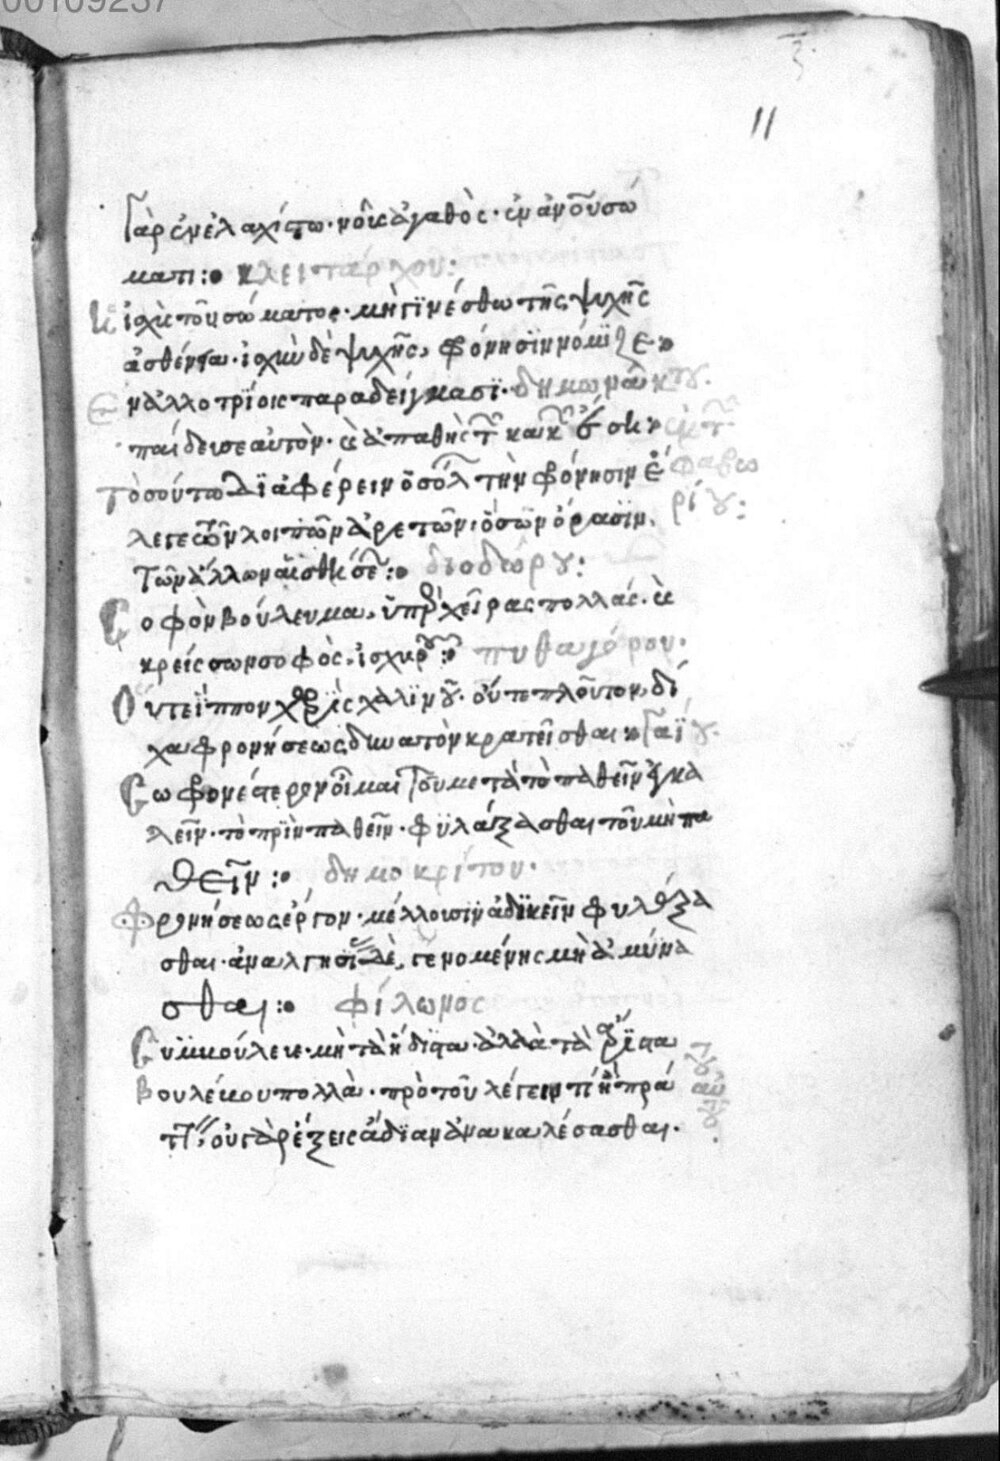 00109237
ζ
11
γὰρ ἐν ἐλαχίστω· νοῦς ἀγαθὸς· ἐν ἀν̅ου σώ
ματι: κλειτάρχου:
Ἰσχὺς τοῦ σώματος· μὴ γινέσθω τῆς ψυχῆς
ἀσθένεια· ἰσχὺν δὲ ψυχῆς, φρόνησϊν νόμϊζε·
Ἐν ἀλλοτρίοις παραδείγμασϊ·
παίδευε σεαυτὸν· καὶ ἀπαθὴς τῶν κακῶν
Τοσούτω διαφέρειν τὴν φρόνησιν
λεγε τῶν λοιπῶν ἀρετῶν· ὅσων ὅρασϊν,
τῶν ἄλλων αἰσθήσε: διοδώρου:
Σοφὸν βούλευμα, ὑπὲρ χεῖρας πολλάς· καὶ
κρείσσων σοφὸς, ἰσχυροῦ: πυθαγόρου·
Οὔτε ἵππον χωρὶς χαλινοῦ· οὔτε πλοῦτον, δί
χα φρονήσεως, δυνατὸν κρατεῖσθαι: γαΐου·
Σωφρονέστερον οἶμαι τοῦ μετὰ τὸ παθεῖν ἐγκα
λεῖν· τὸ πρὶν παθεῖν· φυλάξασθαι τοῦ μὴ πα
θεῖν: δημοκρίτου·
Φρονήσεως ἔργον· μέλλουσϊν ἀδϊκεῖν φυλάξα
σθαι· ἀναλγησί δὲ, γενομένης μὴ ἀμύνα
σθαι: φίλωνος
Συμβούλευε· μὴ τὰ ἥδιστα· ἀλλὰ τὰ ἄριστα
Βουλεύου πολλὰ· πρὸ τοῦ λέγειν τί ἢ πρά
τειν, οὐ γὰρ ἕξεις ἄδειαν ἀνακαλέσασθαι·